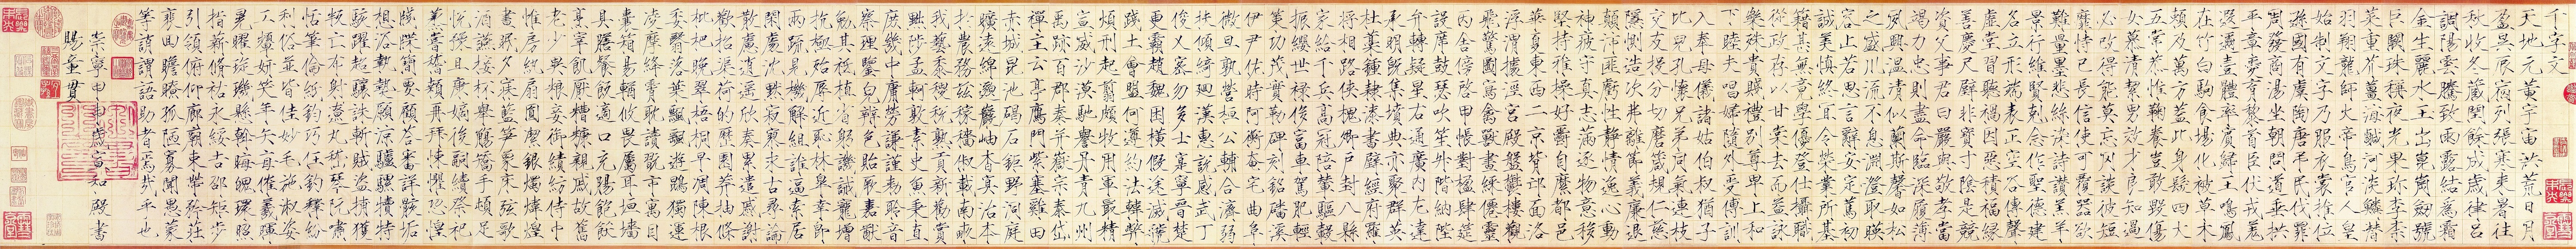 千字文
天地元黃宇宙洪荒日月
盈昃辰宿列張寒來暑往
秋收冬藏閏餘成歲律呂
調陽雲騰致雨露結為霜
金生麗水玉出崑崗劒號
巨闕珠稱夜光果珍李柰
菜重芥薑海鹹河淡鱗潛
羽翔龍師火帝鳥官人皇
始制文字乃服衣裳推位
遜國有虞陶唐弔民伐罪
周發商湯坐朝問道垂拱
平章愛育黎首臣伏戎羌
遐邇壹體率賓歸王鳴鳳
在竹白駒食場化被草木
賴及萬方蓋此身髮四大
五常恭惟鞠養豈敢毀傷
女慕清潔男效才良知過
必改得能莫忘罔談彼短
靡恃己長信使可覆器欲
難量墨悲絲染詩讚羔羊
景行維賢剋念作聖德建
名立形端表正空谷傳聲
虛堂習聽禍因惡積福緣
善慶尺璧非寶寸陰是競
資父事君曰嚴與敬孝當
竭力忠則盡命臨深履薄
夙興溫凊似蘭斯馨如松
之盛川流不息淵澄取暎
容止若思言辭安定篤初
誠美慎終宜令榮業所基
籍甚無竟學優登仕攝職
從政存以甘棠去而益詠
樂殊貴賤禮別尊卑上和
下睦夫唱婦隨外受傅訓
入奉母儀諸姑伯叔猶子
比兒孔懷兄弟同氣連枝
交友投分切磨箴規仁慈
隱惻造次弗離節義廉退
顛沛匪虧性靜情逸心動
神疲守真志滿逐物意移
堅持雅操好爵自縻都邑
華夏東西二京背邙面洛
浮渭據涇宮殿盤鬱樓觀
飛驚圖寫禽獸畫綵僊靈
丙舍傍啟甲帳對楹肆筵
設席鼓瑟吹笙升階納陛
弁轉疑星右通廣內左達
承明既集墳典亦聚群英
杜藁鍾隸漆書壁經府羅
將相路俠槐卿戶封八縣
家給千兵高冠陪輦驅轂
振纓世祿侈富車駕肥輕
策功茂實勒碑刻銘磻溪
伊尹佐時阿衡奄宅曲阜
微旦孰營桓公輔合濟弱
扶傾綺迴漢惠說感武丁
俊乂密勿多士寔寧晉楚
更霸趙魏困橫假途滅虢
踐土會盟何遵約法韓弊
煩刑起翦頗牧用軍最精
宣威沙漠馳譽丹青九州
禹跡百郡秦并嶽宗泰岱
禪主云亭鴈門紫塞雞田
赤城昆池碣石鉅野洞庭
曠遠綿邈巖岫杳冥治本
於農務茲稼穡俶載南畝
我藝黍稷稅熟貢新勸賞
黜陟孟軻敦素史魚秉直
庶幾中庸勞謙謹勅聆音
察理鑒貌辯色貽厥嘉猷
勉其祗植省躬譏誡寵增
抗極殆辱近恥林皋幸即
兩疏見機解組誰逼索居
閑處沈默寂寥求古尋論
散慮逍遙欣奏累遣慼謝
歡招渠荷的歷園莽抽條
枇杷晚翠梧桐早凋陳根
委翳落葉飄颻遊鵾獨運
凌摩絳霄耽讀翫市寓目
囊箱易輶攸畏屬耳垣墻
具膳飡飯適口充腸飽飫
烹宰飢厭糟糠親戚故舊
老少異糧妾御績紡侍巾
帷房紈扇圓潔銀燭煒煌
晝眠夕寐藍笋象床弦歌
酒讌接杯舉觴矯手頓足
悅豫且康嫡後嗣續祭祀
蒸嘗稽顙再拜悚懼恐惶
牋牒簡要顧答審詳骸垢
想浴執熱願涼驢騾犢特
駭躍超驤誅斬賊盜捕獲
叛亡布射遼丸嵇琴阮嘯
恬筆倫紙鈞巧任釣釋紛
利俗並皆佳妙毛施淑姿
工顰妍笑年矢每催羲暉
朗耀琁璣懸斡晦魄環照
指薪脩祜永綏吉劭矩步
引領俯仰廊廟束帶矜莊
瞻眺孤陋寡聞愚蒙
等誚謂語助者焉哉乎也
崇寧甲申歲宣和殿書
賜童貫